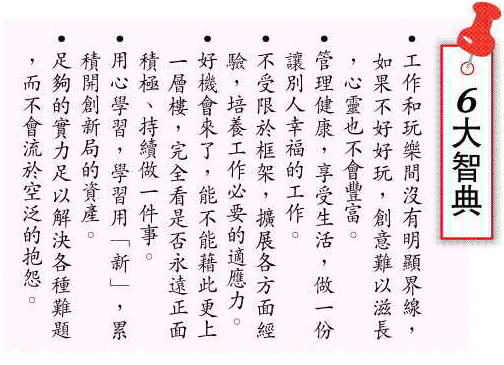 6大智典
•工作和玩樂間沒有明顯界線，
如果不好好玩，創意難以滋長
，心靈也不會豐富。
•管理健康，享受生活，做一份
讓別人幸福的工作。
•不受限於框架，擴展各方面經
驗，培養工作必要的適應力。
•好機會來了，能不能藉此更上
一層樓，完全看是否永遠正面
積極、持續做一件事。
•用心學習，學習用「新」，累
積開創新局的資產。
•足夠的實力足以解決各種難題
，而不會流於空泛的抱怨。